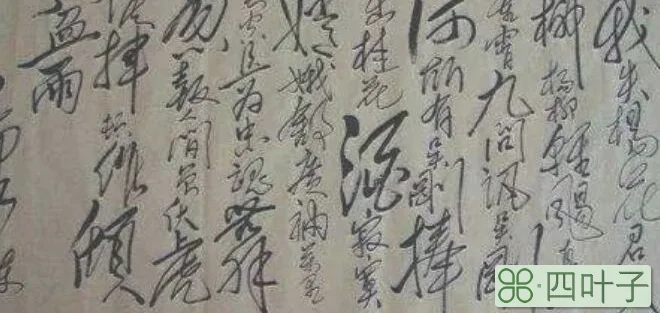 我失楊花君失
柳楊柳輕颺直
重霄九问訊吴刚
何所有吴刚捧
出桂花酒寂寞
嫦娥舒廣袖萬里
空且为忠魂舞
忽報人间曾伏虎
飛顿作倾
盆雨
四叶子